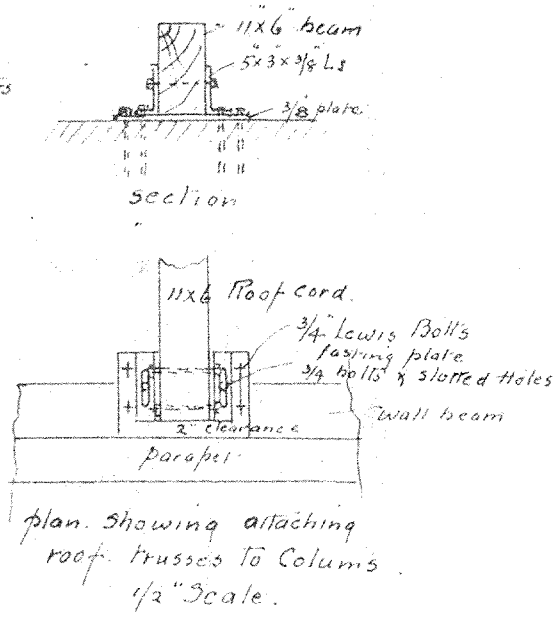 11"x6" beam
5"x3"x3/8" Ls
3/8" plate
section
11x6 Roof cord.
3/4" Lewis Bolts
fasting plate
3/4 bolts & slotted Holes
Wall beam
2" clearance
parapet
plan. showing attaching
roof trusses to Colums.
1/2" Scale.